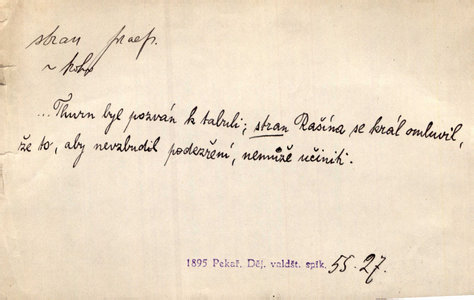 stran praep.
~ koho
...Thurn byl pozván k tabuli; stran Rašína se král omluvil,
že to, aby nevzbudil podezření, nemůže učiniti.
1895 Pekař. Děj. valdšt. spik. 55.27.